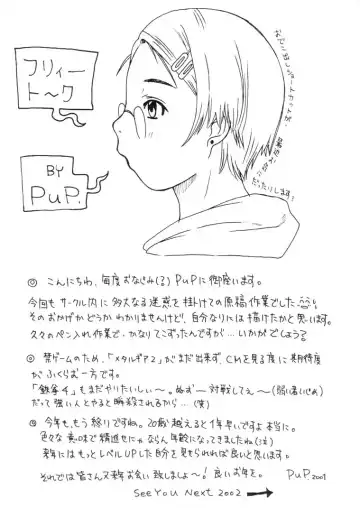 フリィー
トーク
BY
PuP.
だったりします!
◎ こんにちわ、毎度おなじみ(?)PuPに御座います。
今回も サークル内に 多大なる迷惑を掛けての原稿作業でした
そのおかげか どうか わかりませんけど、自分なりには 描けたかと思います。
久々のペン入れ作業で、かなりてこずったんですが… いかがでしょう?
◎ 禁ゲームのため、「メタルギア2」がまだ出来ず、CMを見る度に期待度
がふくらむ一方です。
「鉄拳4」もまだやりたいしぃ〜。ぬおー 対戦してぇ〜(弱い者いじめ)
だって強い人とやると瞬殺されるから…(笑)
◎ 今年も、もう終りですね。20歳越えると1年早いですよ本当に。
色々な意味で精進せにゃならん年齢になってきましたね(泣)
新年にはもっとレベルUPした自分を見せられれば良いと思います。
それでは皆さん又新年お会い致しましょ〜! 良いお年を。 PuP.2001
See You Next 2002